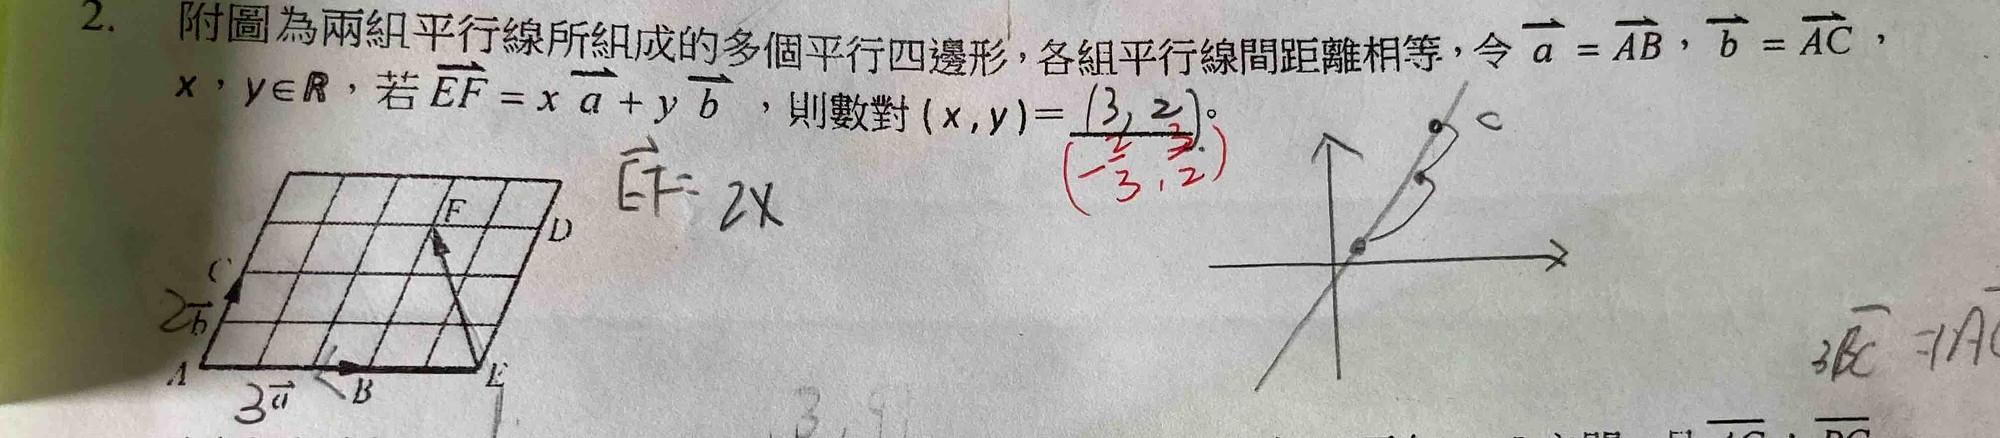 2. 附圖為兩組平行線所組成的多個平行四邊形，各組平行線間距離相等，令 a = AB，b = AC，
x，y∈ℝ，若 EF = x a + y b，則數對 (x, y) = (3, 2)。
(-2/3, 3/2)
EF = 2x
C
F
D
C
2b
A
3a
B
E
3BC = 1A